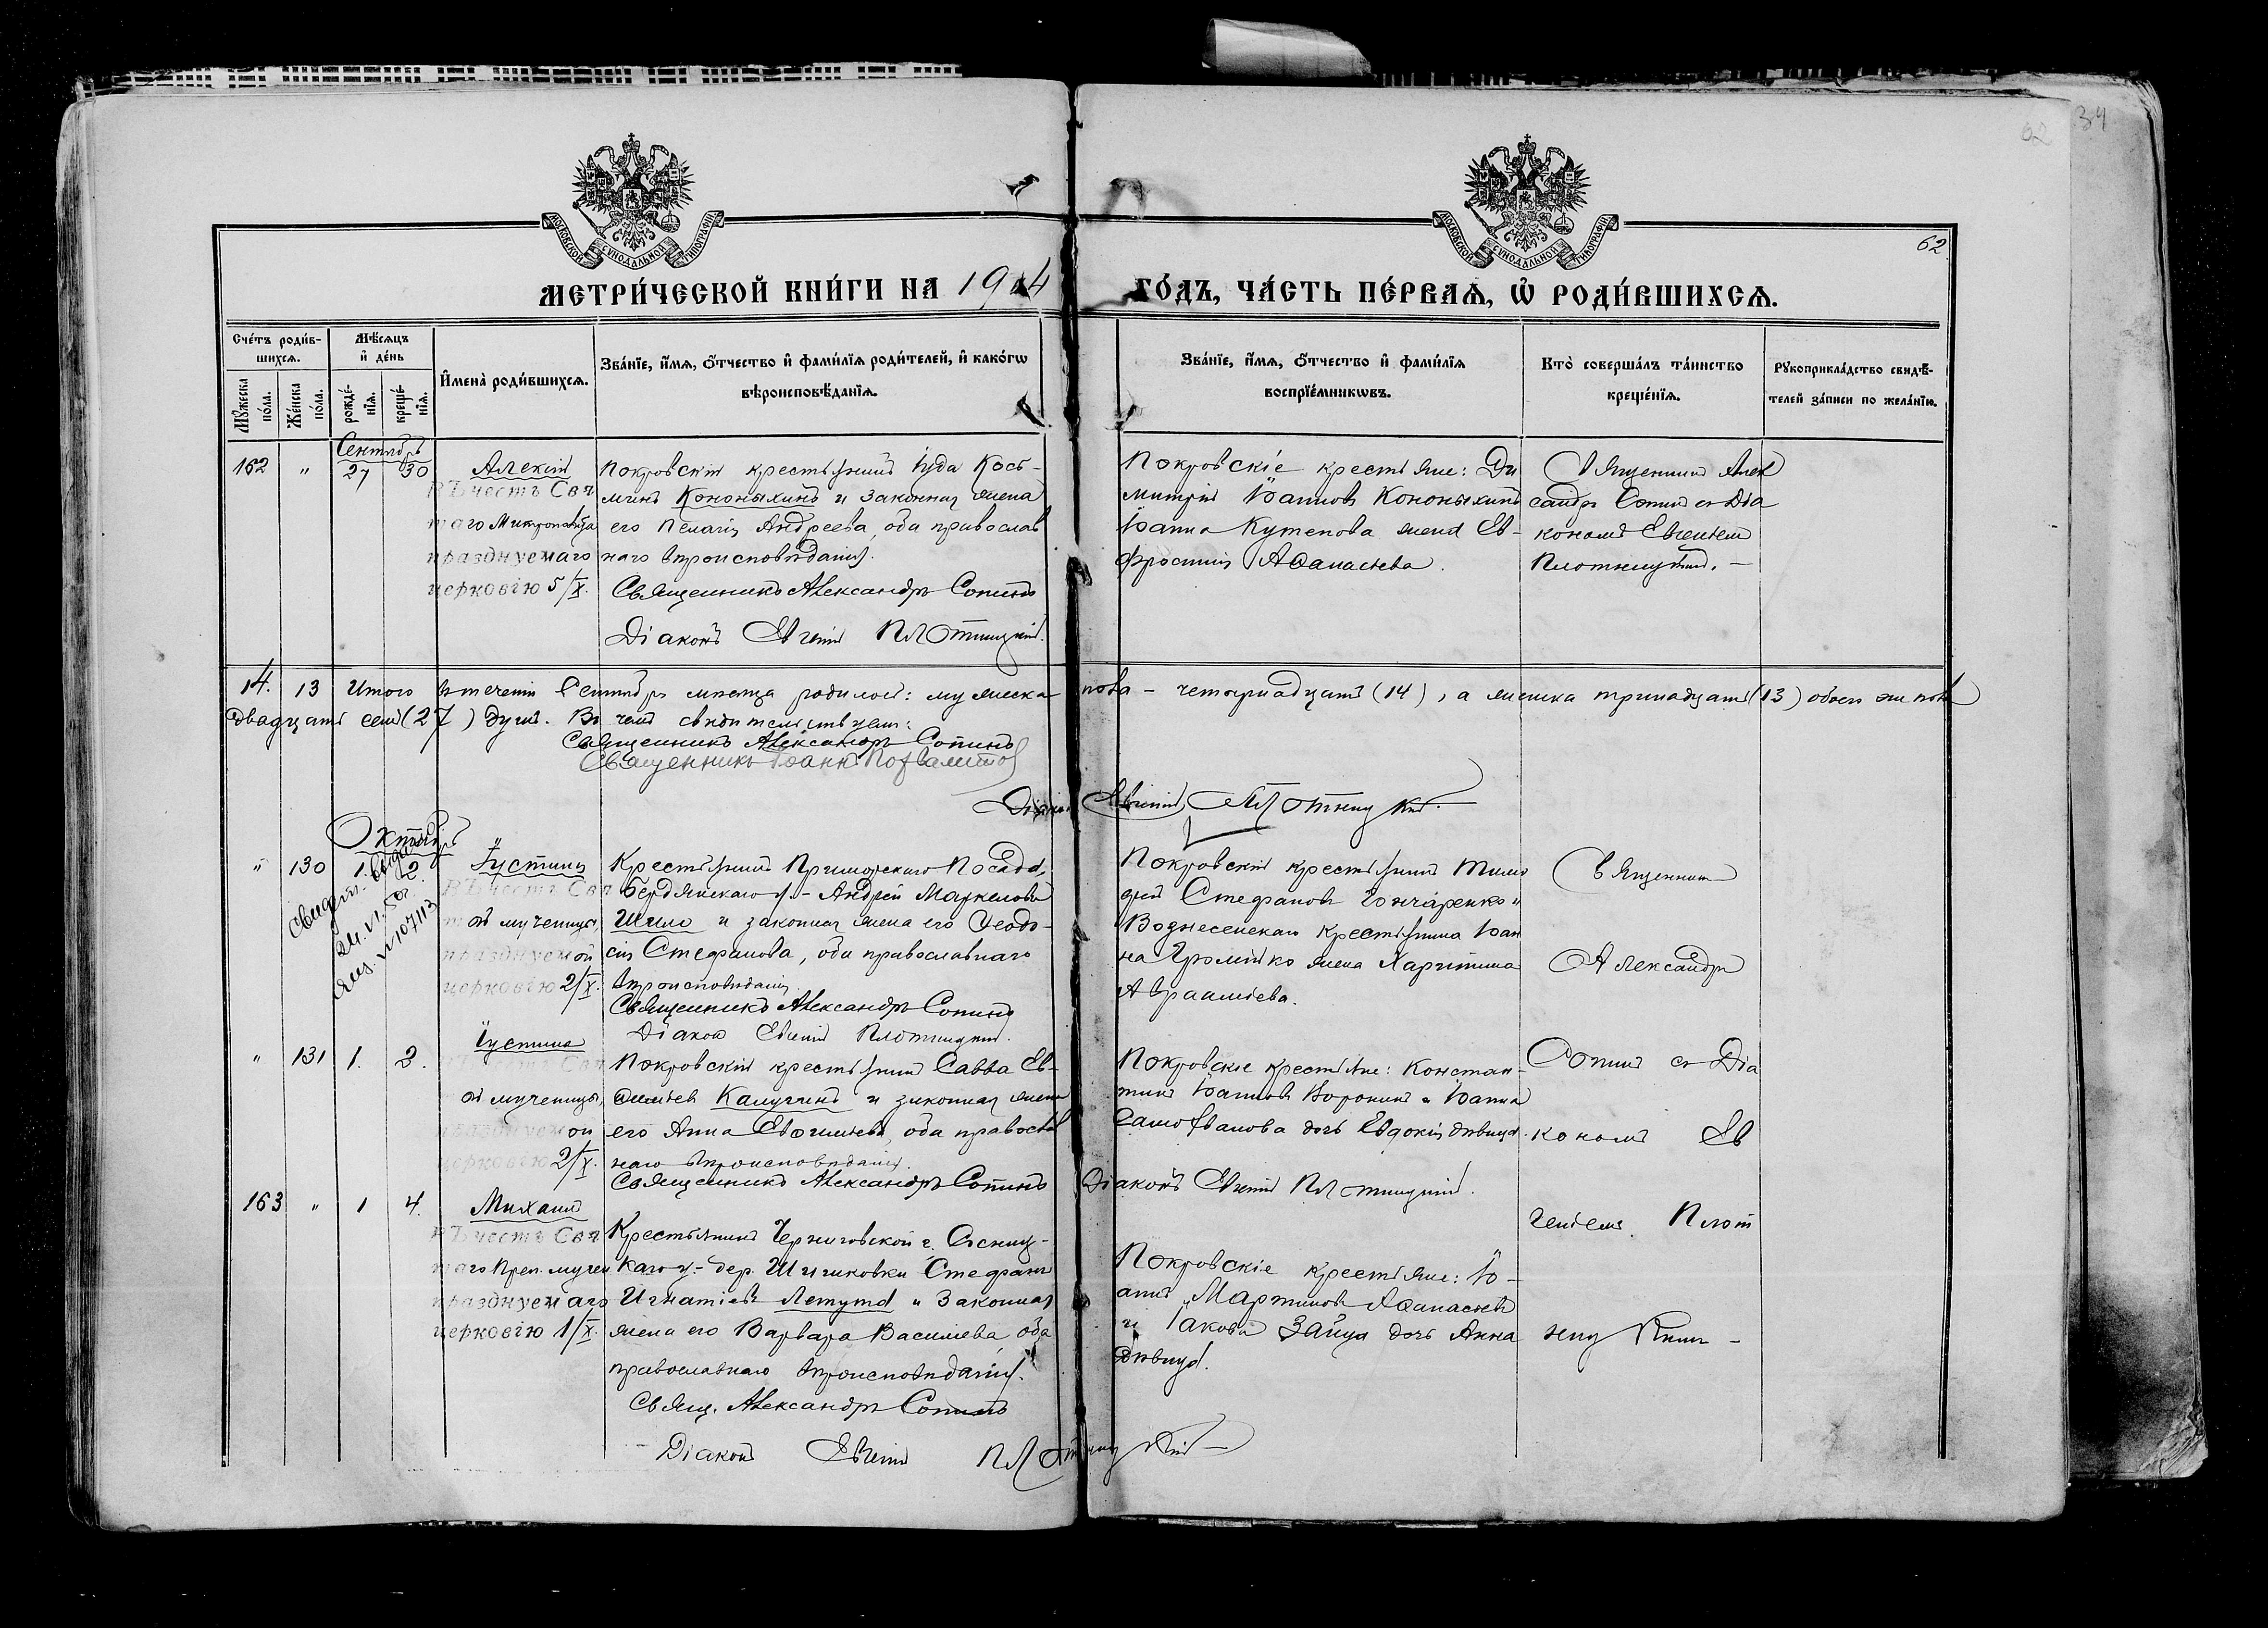 34
62
62
МОСКОВСКОЙ СѴНОДАЛЬНОЙ ТИПОГРАФІИ
МОСКОВСКОЙ СѴНОДАЛЬНОЙ ТИПОГРАФІИ
МЕТРИ́ЧЕСКОЙ КНИ́ГИ НА 1904
ГО́ДЪ, ЧА́СТЬ ПЕ́РВАѦ, Ѡ҆ РОДИ́ВШИХСѦ.
Сче́тъ роди́в-
шихсѧ.
Мѣ́сѧцъ
и҆ де́нь
Мꙋ́жеска по́ла.
Же́нска по́ла.
рожде́-
нїѧ.
креще́-
нїѧ.
И҆мена̀ роди́вшихсѧ.
Зва́нїе, и҆́мѧ, ѻ҆́тчество и҆ фами́лїѧ роди́телей, и҆ како́гѡ
вѣроисповѣ́данїѧ.
Зва́нїе, и҆́мѧ, ѻ҆́тчество и҆ фами́лїѧ
воспрїе́мникѡвъ.
Кто̀ соверша́лъ та́инство
креще́нїѧ.
Рꙋкоприкла́дство свидѣ́-
телей за́писи по жела́нїю.
Сентябрь
162 " 27 30
Алексій
Въ честь Свя
таго Митрополита
празднуемаго
церковію 5/X.
Покровскій крестьянинъ Іуда Кось-
минъ Кононыхинъ и законная жена
его Пелагія Андреева, оба православ
наго вѣроисповѣданія.
Священникъ Александръ Сопинъ
Діаконъ Евгеній Плотницкій.
Покровскіе крестьяне: Ди
митрій Іоанновъ Кононыхинъ
Іоанна Кутепова жена Ев-
фросинія Аѳанасьева.
Священникъ Алек
сандръ Сопинъ съ Діа
кономъ Евгеніемъ
Плотницкимъ. —
14. 13 Итого въ теченіи Сентябрѣ мѣсяца родилось: мужеска пола - четырнадцать (14), а женска тринадцать (13) обоего же пола
двадцать семь (27) душъ. Въ чемъ свидѣтельствуемъ:
Священникъ Александръ Сопинъ
Священникъ Іоаннъ
Діаконъ Евгеній Плотницкій.
Октябрь
" 130 1. 2.
Іустина
Въ честь Свя
той мученицы,
празднуемой
церковію 2/X.
Крестьянинъ Приморскаго Посада,
Бердянскаго у. - Андрей Маркеловъ
Шило и законная жена его Ѳеодо-
сія Стефанова, оба православнаго
вѣроисповѣданія.
Священникъ Александръ Сопинъ
Діаконъ Евгеній Плотницкій.
Покровскій крестьянинъ Тимо
фей Стефановъ Гончаренко и
Вознесенскаго крестьянина Іоан
на Громыко жена Харитина
Авраамьева.
Священник
Александръ
" 131 1. 2.
Іустина
Въ честь Свя
той мученицы,
празднуемой
церковію 2/X.
Покровскій крестьянинъ Савва Ев-
ѳиміевъ Калугинъ и законная жена
его Анна Евѳиміева, оба православ
наго вѣроисповѣданія.
Священникъ Александръ Сопинъ
Діаконъ Евгеній Плотницкій.
Покровскіе крестьяне: Констан-
тинъ Іоанновъ Воронинъ и Іоанна
дочь Евдокія дѣвица.
Сопинъ съ Діа
кономъ Ев
геніемъ Плот
163 " 1 4.
Михаилъ
Въ честь Свя
таго Преп. мучен
празднуемаго
церковію 1/X.
Крестьянинъ Черниговской г. Сосниц-
каго у. - дер. Стефанъ
Игнатіевъ Летута и законная
жена его Варвара Василіева, оба
православнаго вѣроисповѣданія.
Свящ. Александръ Сопинъ
Діаконъ Евгеній Плотницкій —
Покровскіе крестьяне: Іо-
аннъ Мартиновъ Аѳанасьевъ
и Іакова Зайца дочь Анна
дѣвица.
ницкимъ —